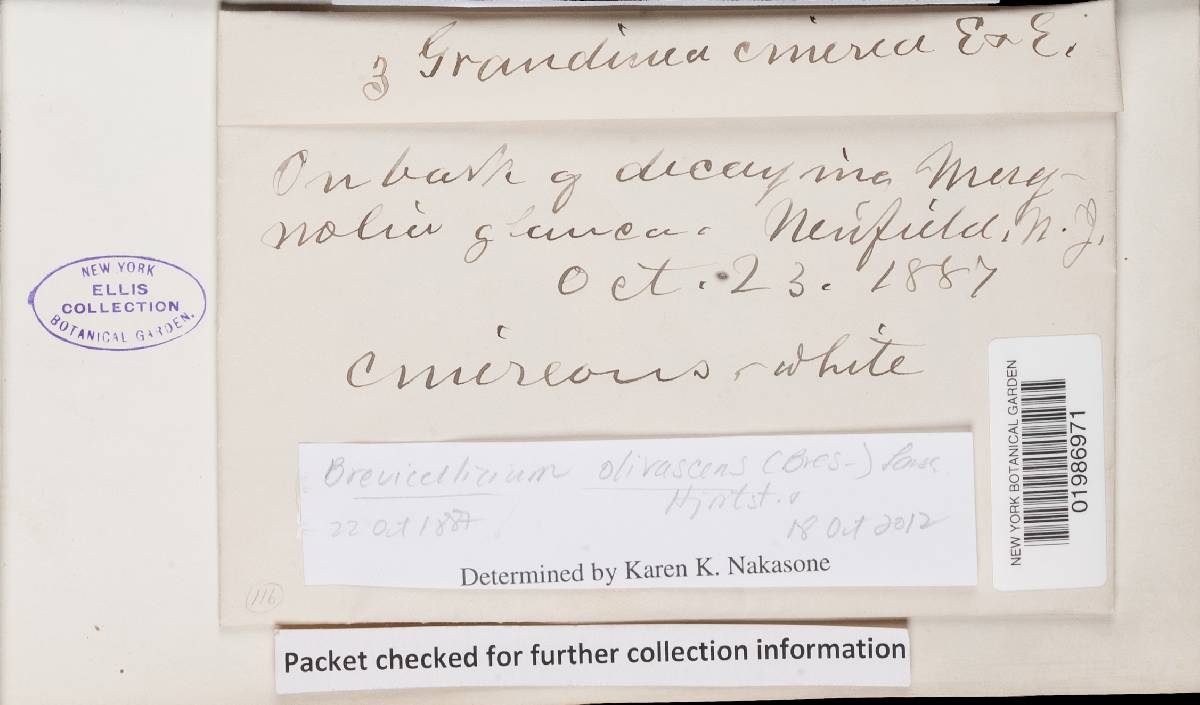 3 Grandinea cinerea E & E.
On bark of decaying Mag-
nolia glauca. Newfield, N. J.
Oct. 23. 1887
cinereous-white
NEW YORK
ELLIS
COLLECTION
BOTANICAL GARDEN.
Brevicellicium olivascens (Bres.)
Hjortst.
22 Oct 1887 18 Oct 2012
Determined by Karen K. Nakasone
116
NEW YORK BOTANICAL GARDEN
01986971
Packet checked for further collection information